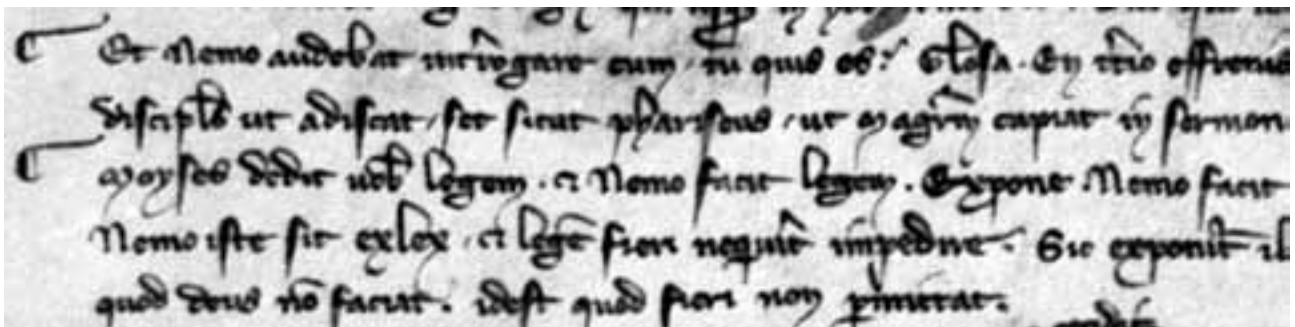 ¶ Et Nemo audebat int̄rogare eum · tu quis es? Glosa · En
discipl̄s ut adiscat / set sicut phariseus / ut magr̄m capiat in sermon
¶ Moyses dedit uob̄ legem · et Nemo facit legem · Expone · Nemo facit
Nemo iste sit exlex / et legē fieri nequiit impedire · Sic exponit̄ il
quod deus nō faciat · idest quod fieri non permittat ·